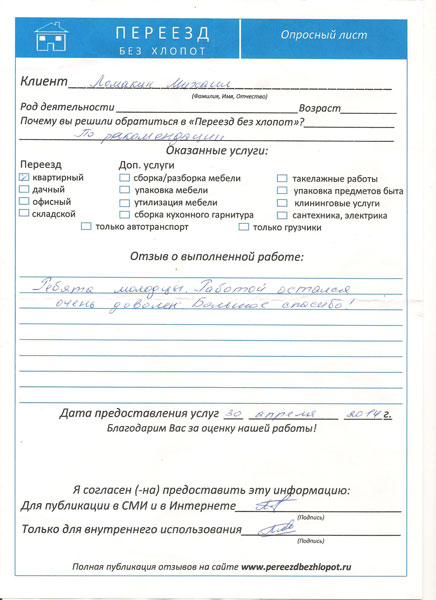 ПЕРЕЕЗД
БЕЗ ХЛОПОТ
Опросный лист
Клиент Ломакин Михаил
(Фамилия, Имя, Отчество)
Род деятельности Возраст
Почему вы решили обратиться в «Переезд без хлопот»?
По рекомендации
Оказанные услуги:
Переезд Доп. услуги
квартирный сборка/разборка мебели такелажные работы
дачный упаковка мебели упаковка предметов быта
офисный утилизация мебели клининговые услуги
складской сборка кухонного гарнитура сантехника, электрика
только автотранспорт только грузчики
Отзыв о выполненной работе:
Ребята молодцы. Работой остался
очень доволен Большое спасибо!
Дата предоставления услуг 30 апреля 2014 г.
Благодарим Вас за оценку нашей работы!
Я согласен (-на) предоставить эту информацию:
Для публикации в СМИ и в Интернете
(Подпись)
Только для внутреннего использования
(Подпись)
Полная публикация отзывов на сайте www.pereezdbezhlopot.ru